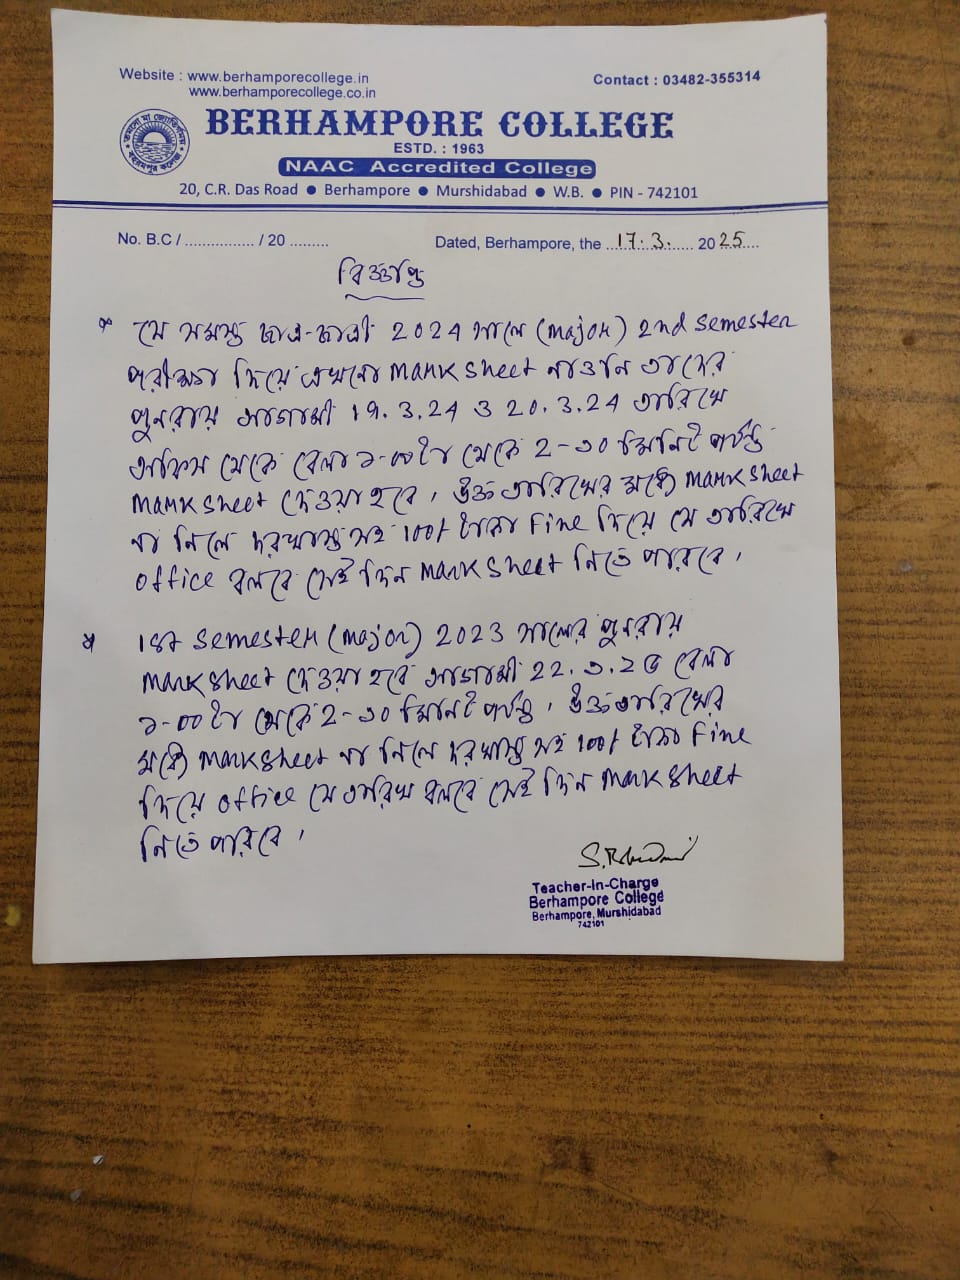 Website : www.berhamporecollege.in
www.berhamporecollege.co.in
Contact : 03482-355314
BERHAMPORE COLLEGE
ESTD. : 1963
NAAC Accredited College
20, C.R. Das Road ● Berhampore ● Murshidabad ● W.B. ● PIN - 742101
No. B.C / ................ / 20 .........
Dated, Berhampore, the ...17.3....... 2025....
বিজ্ঞপ্তি
* যে সমস্ত ছাত্র-ছাত্রী 2024 সালে (major) 2nd semester
পরীক্ষা দিয়ে এখনো marksheet নাওনি তাদের
পুনরায় আগামী 19.3.24 ও 20.3.24 তারিখে
অফিস থেকে বেলা ১-০০টা থেকে 2-৩০ মিনিট পর্যন্ত
marksheet দেওয়া হবে। উক্ত তারিখের মধ্যে marksheet
না নিলে দরখাস্ত সহ 100/- টাকা Fine দিয়ে যে তারিখে
office বলবে সেই দিন marksheet নিতে পারবে।
* 1st semester (major) 2023 সালের পুনরায়
marksheet দেওয়া হবে আগামী 22.৩.2৫ বেলা
১-০০টা থেকে 2-৩০ মিনিট পর্যন্ত। উক্ত তারিখের
মধ্যে marksheet না নিলে দরখাস্ত সহ 100/- টাকা Fine
দিয়ে office যে তারিখ বলবে সেই দিন marksheet
নিতে পারবে।
Teacher-In-Charge
Berhampore College
Berhampore, Murshidabad
742101